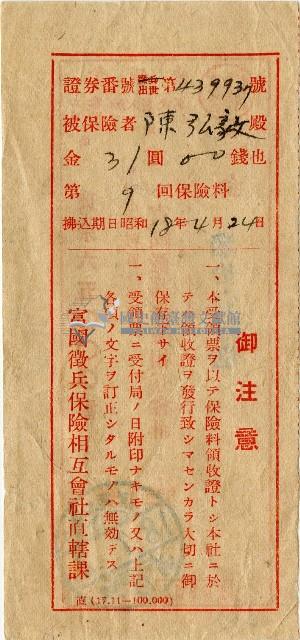 證券番號 第439937號
被保險者 陳弘毅 殿
金 31圓00錢也
第 9 回保險料
拂込期日昭和18年4月24日
御注意
一、本受領票ヲ以テ保險料領收證トシ本社ニ於
テ領收證ヲ發行致シマセンカラ大切ニ御
保存下サイ
一、受領票ニ受付局ノ日附印ナキモノ又ハ上記
各項ノ文字ヲ訂正シタルモノハ無効デス
富國徵兵保險相互會社直轄課
直(17.11—100,000)